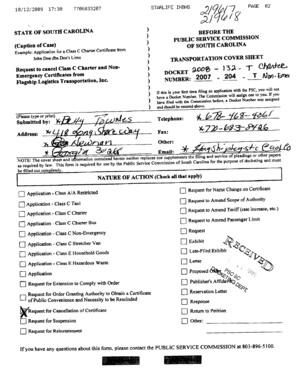 10/12/2009 17:30 7706833207 STARLIFE INBMG PAGE 02
219617
219618
STATE OF SOUTH CAROLINA
(Caption of Case)
Example: Application for a Class C Charter Certificate from
John Doe dba Doe's Limo
Request to cancel Class C Charter and Non-
Emergency Certificates from
Flagship Logistics Transportation, Inc.
BEFORE THE
PUBLIC SERVICE COMMISSION
OF SOUTH CAROLINA
TRANSPORTATION COVER SHEET
DOCKET 2008-132-T Charter
NUMBER: 2007-204-T Non-Emer
If this is your first time filing an application with the PSC, you will not
have a Docket Number. The Commission will assign one to you. If you
have filed with the Commission before, a Docket Number was assigned
and should be entered above.
(Please type or print)
Submitted by: Towles
Address:
Newnan
Georgia
Telephone: 678-468-4061
Fax:
Other:
Email:
NOTE: The cover sheet and information contained herein neither replaces nor supplements the filing and service of pleadings or other papers
as required by law. This form is required for use by the Public Service Commission of South Carolina for the purpose of docketing and must
be filled out completely.
NATURE OF ACTION (Check all that apply)
Application - Class A/A Restricted
Application - Class C Taxi
Application - Class C Charter
Application - Class C Charter Bus
Application - Class C Non-Emergency
Application - Class C Stretcher Van
Application - Class E Household Goods
Application - Class E Hazardous Waste
Application
Request for Extension to Comply with Order
Request for Order Granting Authority to Obtain a Certificate
of Public Convenience and Necessity to be Rescinded
Request for Cancellation of Certificate
Request for Suspension
Request for Reinstatement
Request for Name Change on Certificate
Request to Amend Scope of Authority
Request to Amend Tariff (rate increase, etc.)
Request to Amend Passenger Limit
Request
Exhibit
Late-Filed Exhibit
Letter
Proposed Order
Publisher's Affidavit
Reservation Letter
Response
Return to Petition
Other:
RECEIVED
If you have any questions about this form, please contact the PUBLIC SERVICE COMMISSION at 803-896-5100.